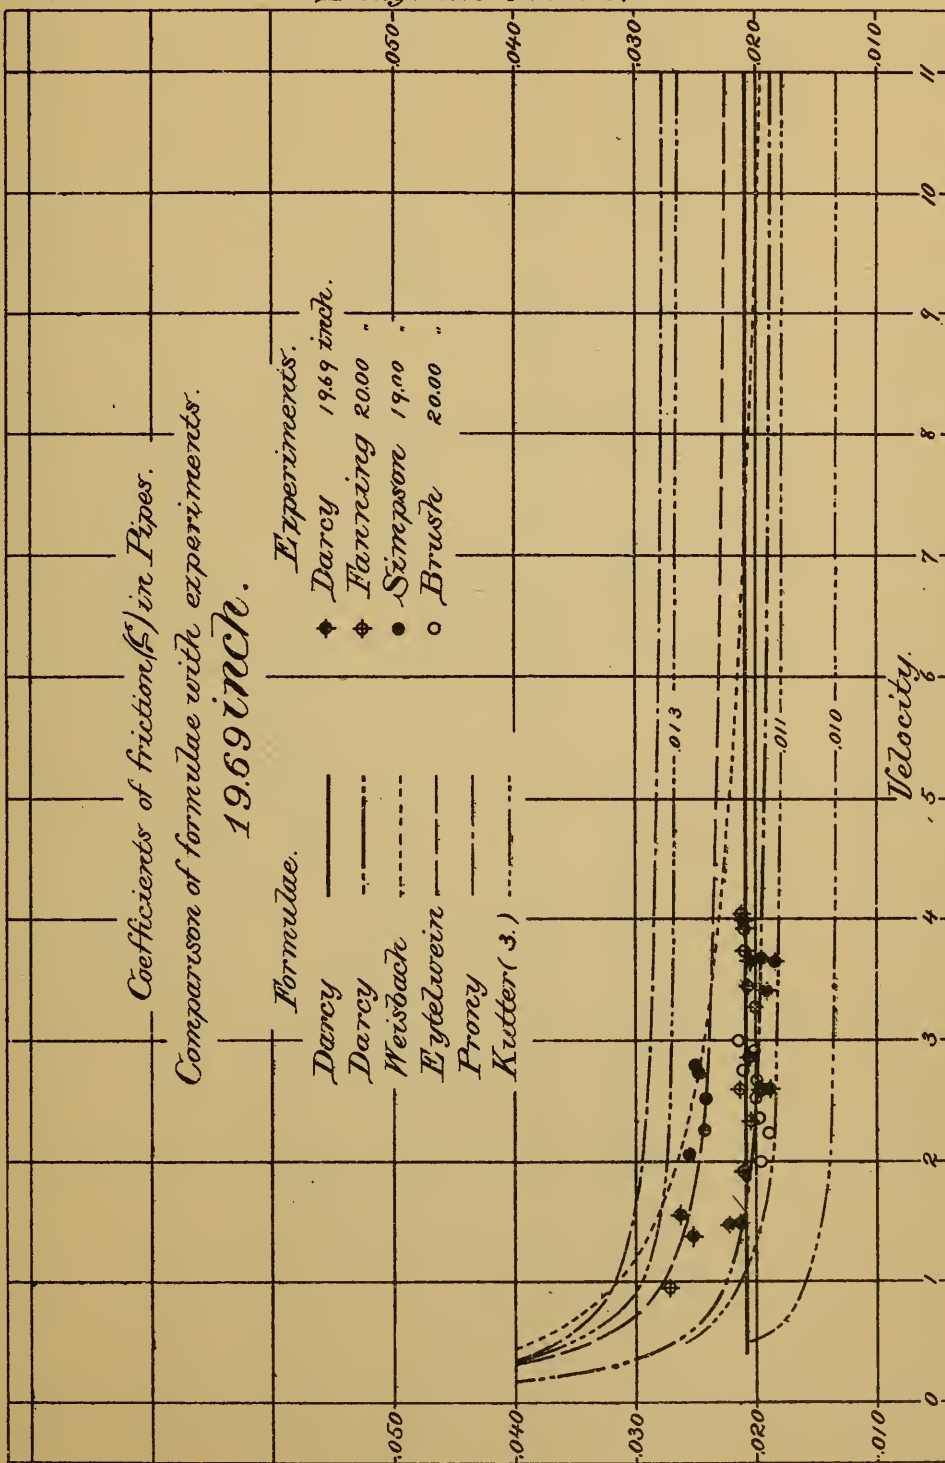 Coefficients of friction (ζ) in Pipes.
Comparison of formulae with experiments.
19.69 inch.
Formulae.
Darcy
Darcy
Weisbach
Eytelwein
Prony
Kutter (3.)
Experiments.
Darcy 19.69 inch.
Fanning 20.00 "
Simpson 19.00 "
Brush 20.00 "
.050
.040
.030
.020
.010
.050
.030
.020
.010
.013
.011
.010
0 1 2 3 4 5 6 7 8 9 10 11
Velocity.